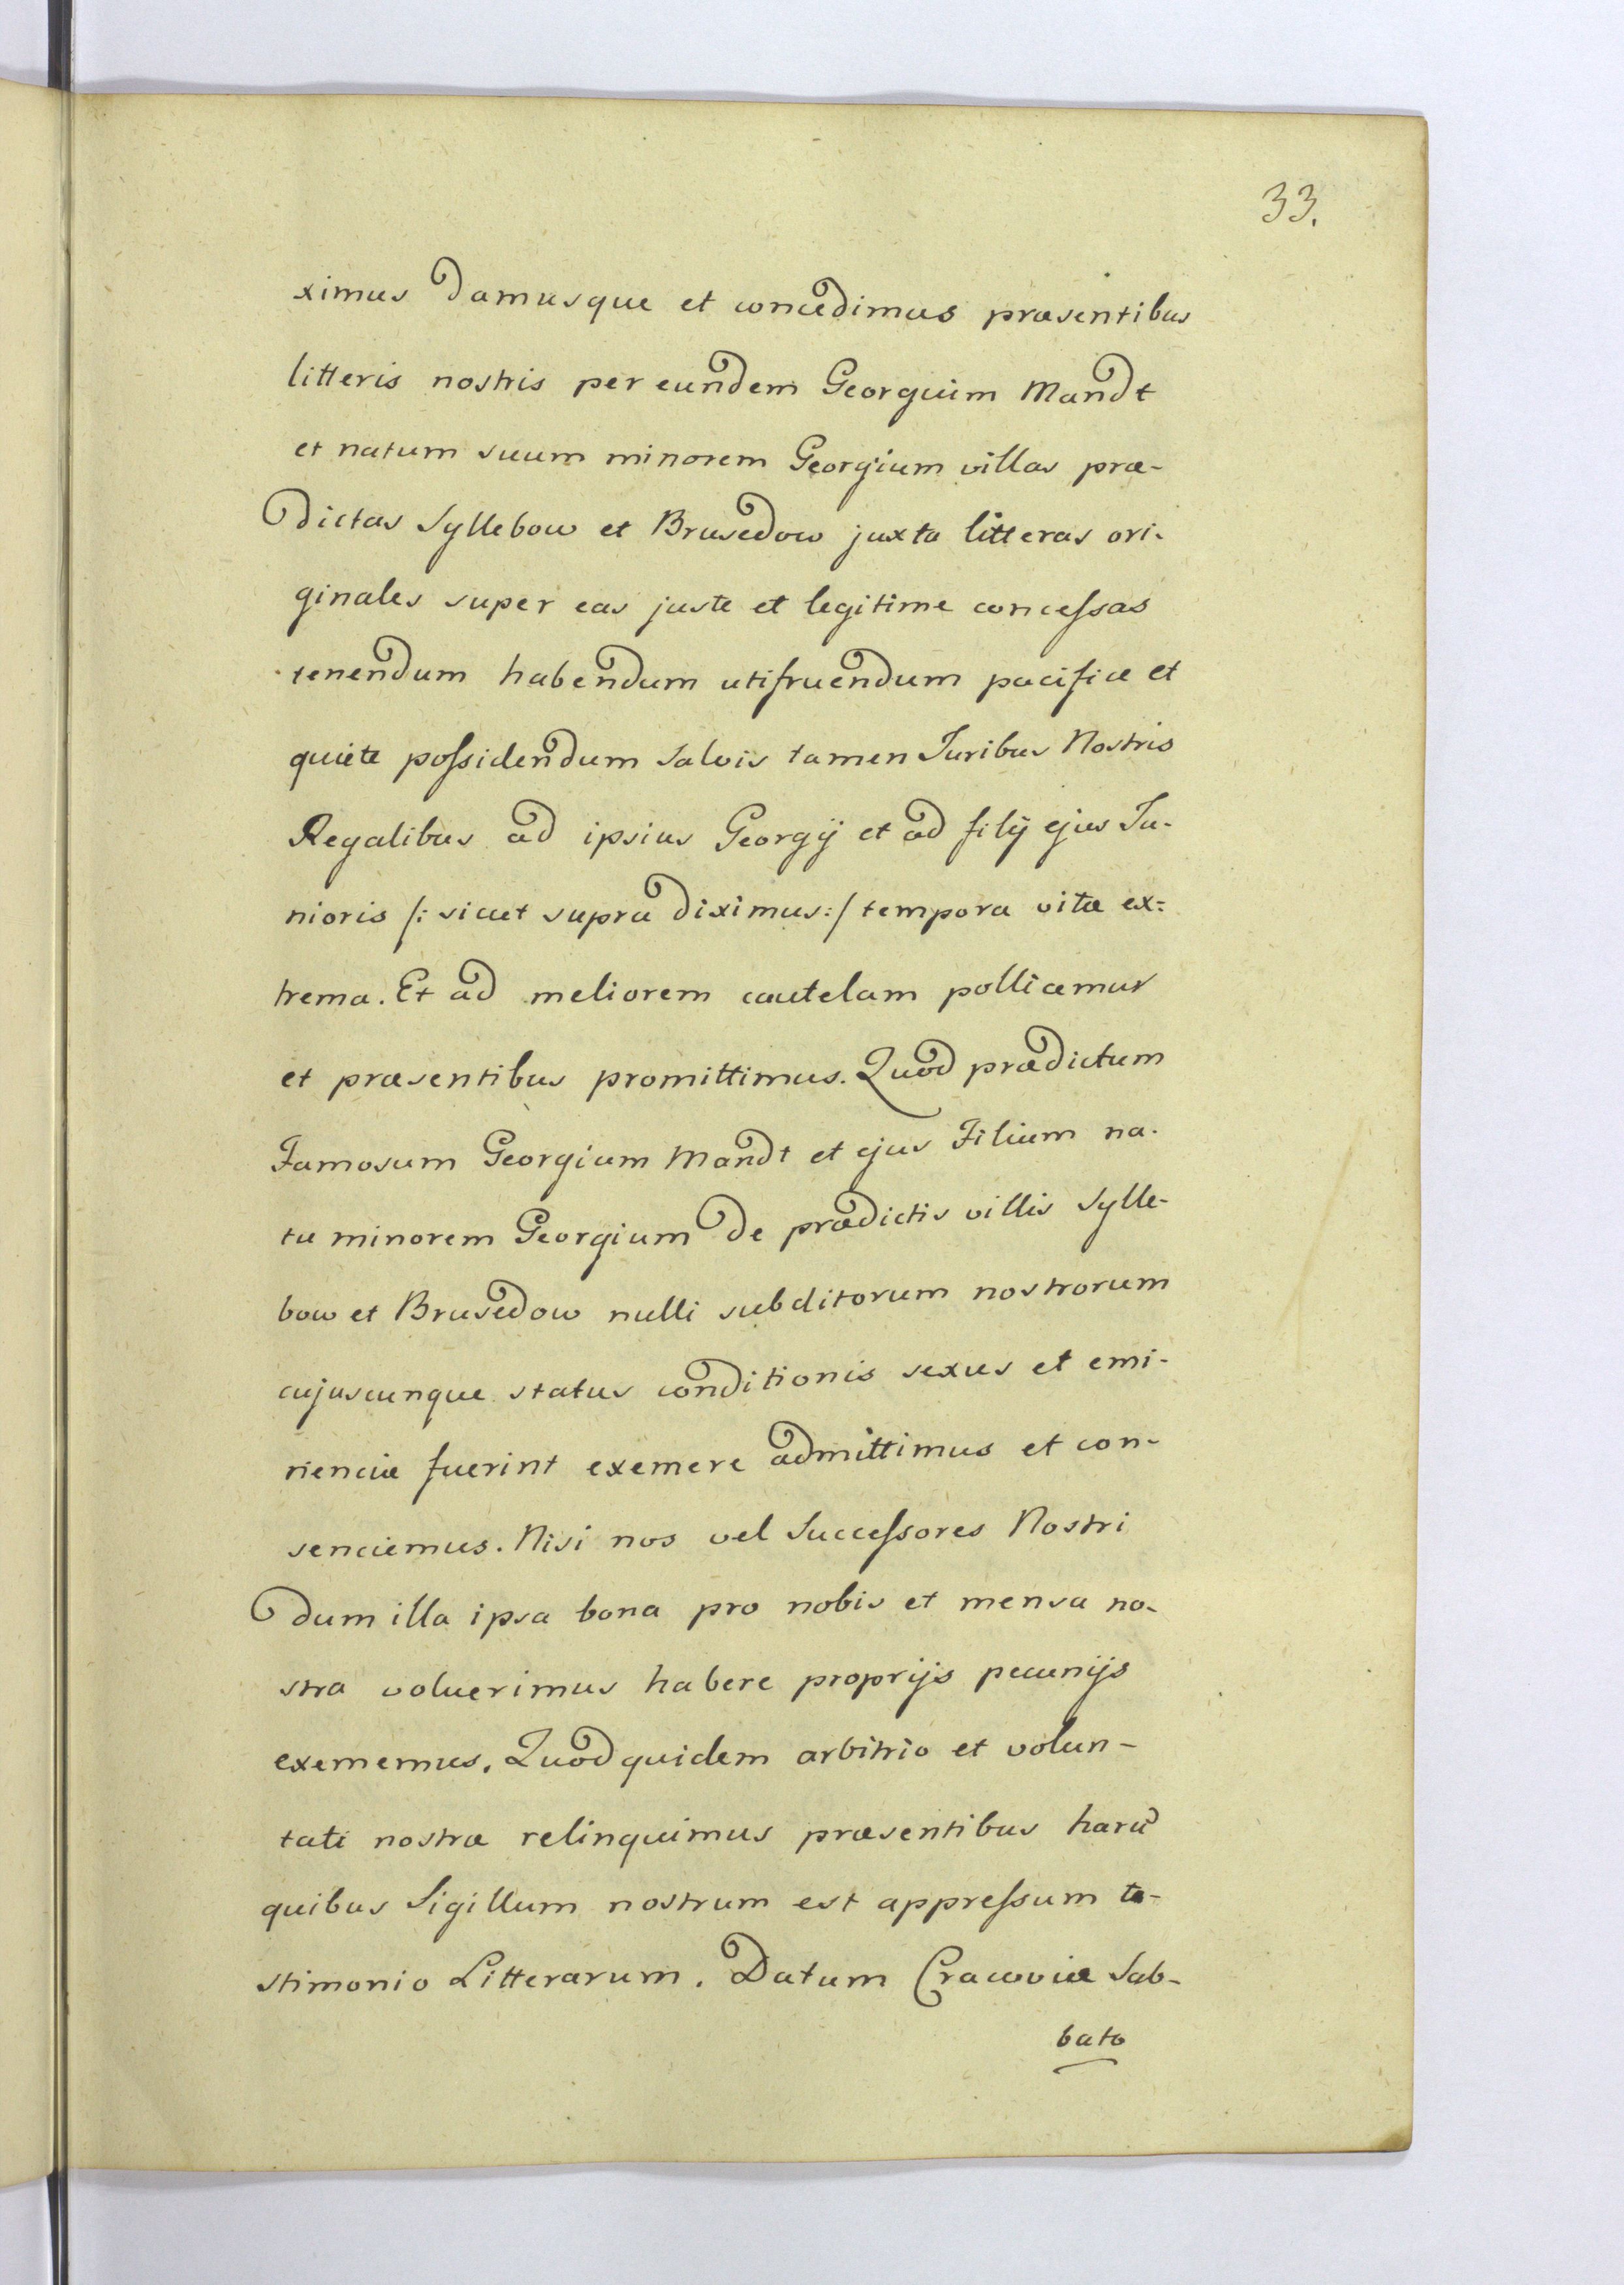 33.
ximus damusque et concedimus præsentibus
litteris nostris per eundem Georguim Mandt
et natum suum minorem Georgium villas præ-
dictas Syllebow et Brusedow juxta litteras ori-
ginales super eas juste et legitime conceſsas
tenendum habendum utifruendum pacifice et
quiete poſsidendum salvis tamen Juribus Nostris
Regalibus ad ipsius Georgÿ et ad filÿ ejus Ju-
nioris /: sicut supra diximus:/ tempora vitæ ex=
trema. Et ad meliorem cautelam pollicemur
et præsentibus promittimus. Quod prædictum
Famosum Georgium Mandt et ejus Filium na-
tu minorem Georgium de prædictis villis Sylle-
bow et Brusedow nulli subditorum nostrorum
cujuscunque status conditionis sexus et emi-
nenciæ fuerint exemere admittimus et con-
senciemus. Nisi nos vel Succeſsores Nostri
dum illa ipsa bona pro nobis et mensa no-
stra voluerimus habere proprÿs pecunÿs
exememus. Quod quidem arbitrio et volun-
tati nostræ relinquimus præsentibus harũ
quibus Sigillum nostrum est appreſsum te-
stimonio Litterarum. Datum Cracoviæ Sab-
bato